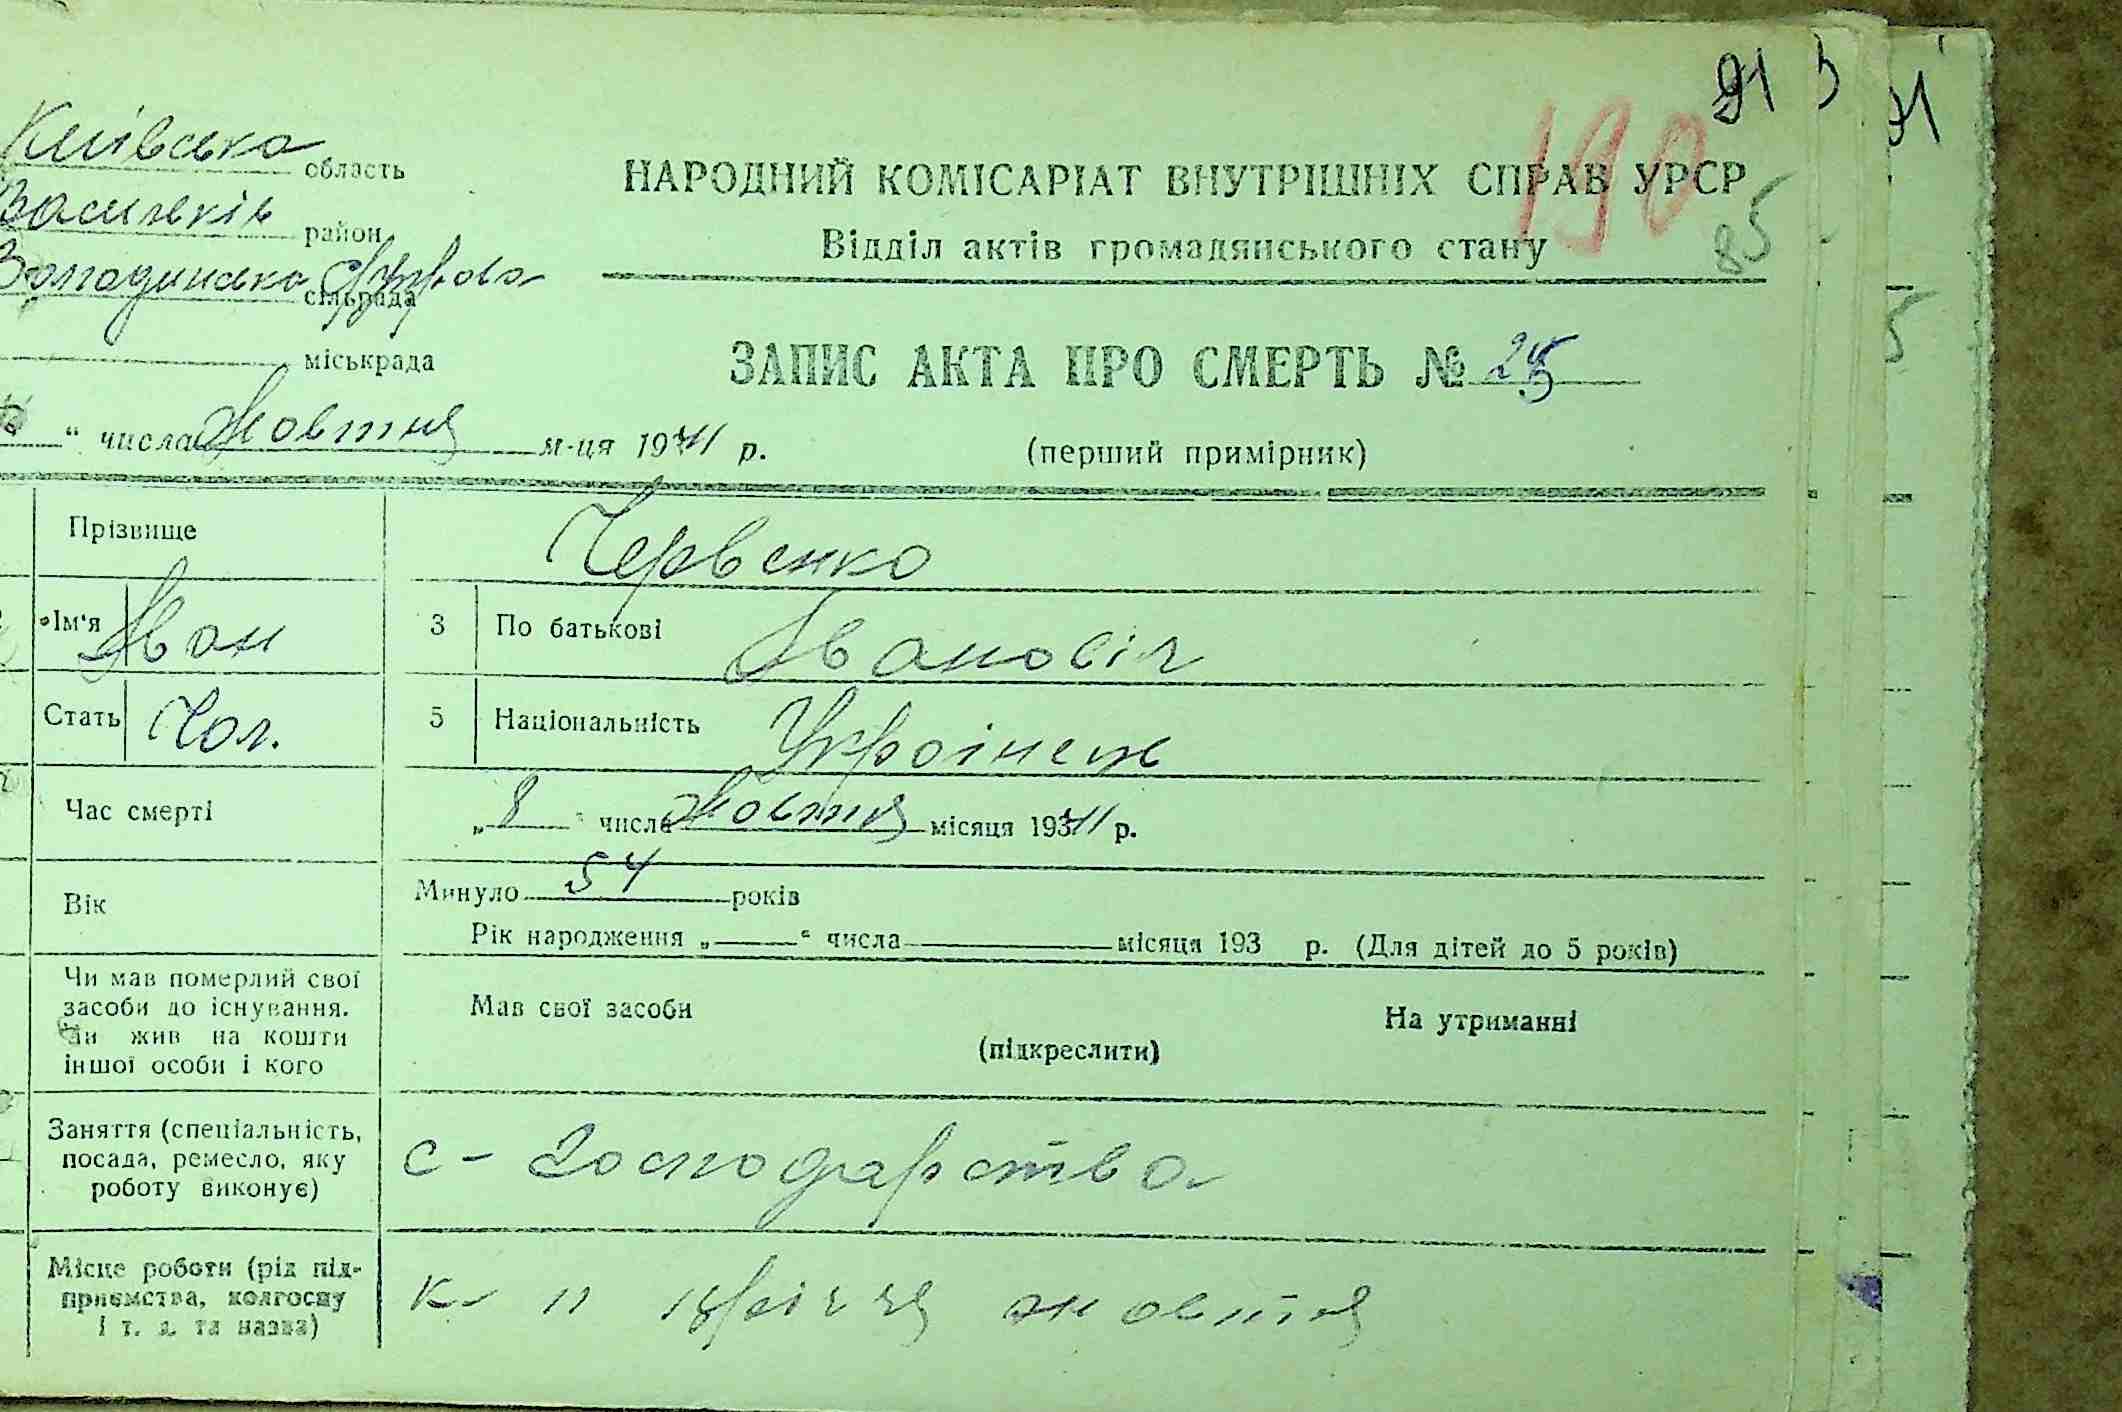 91
190
85
Київська область
Васильків район
сільрада
міськрада
НАРОДНИЙ КОМІСАРІАТ ВНУТРІШНІХ СПРАВ УРСР
Відділ актів громадянського стану
ЗАПИС АКТА ПРО СМЕРТЬ № 25
(перший примірник)
“ числа Жовтня м-ця 1941 р.
Прізвище Червенко
Ім'я Іван 3 По батькові Івановіч
Стать Чол. 5 Національність Українець
Час смерті „ 8 “ числа Жовтня місяця 1941 р.
Вік Минуло 54 років
Рік народження „ “ числа місяця 193 р. (Для дітей до 5 років)
Чи мав померлий свої
засоби до існування.
чи жив на кошти
іншої особи і кого
Мав свої засоби На утриманні
(підкреслити)
Заняття (спеціальність,
посада, ремесло, яку
роботу виконує)
с-господарства
Місце роботи (рід під-
приємства, колгоспу
і т. д. та назва)
к- річчя жовтня